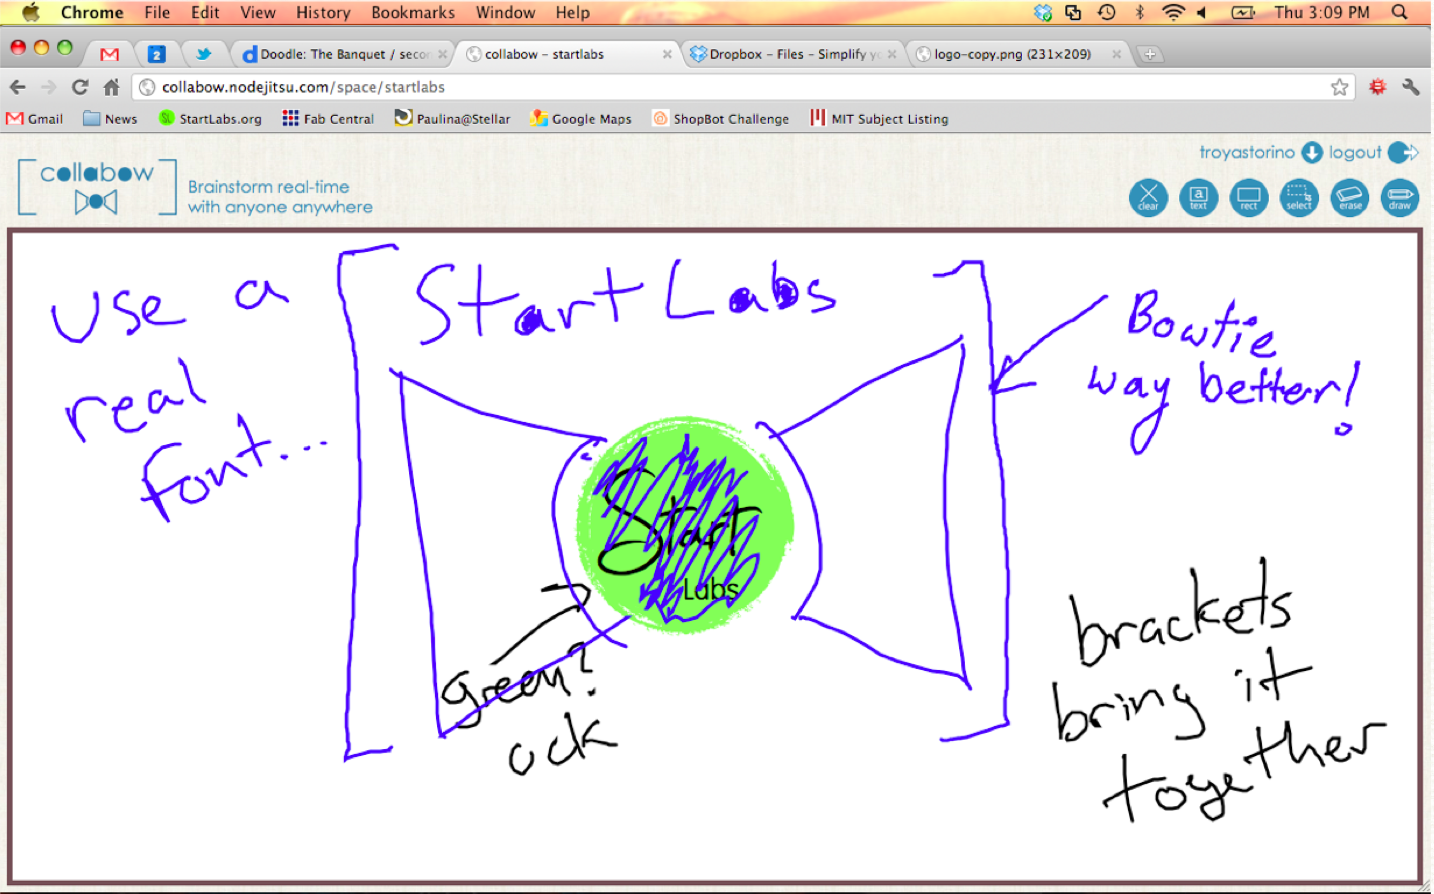 Chrome File Edit View History Bookmarks Window Help Thu 3:09 PM
2 Doodle: The Banquet / secon collabow – startlabs Dropbox – Files – Simplify yo logo-copy.png (231×209)
collabow.nodejitsu.com/space/startlabs
Gmail News SL StartLabs.org Fab Central Paulina@Stellar Google Maps ShopBot Challenge MIT Subject Listing
troyastorino logout
collabow
Brainstorm real-time
with anyone anywhere
clear a text rect select erase draw
Use a
real
font...
Start Labs
Bowtie
way better!
Start
Labs
green?
ack
brackets
bring it
together